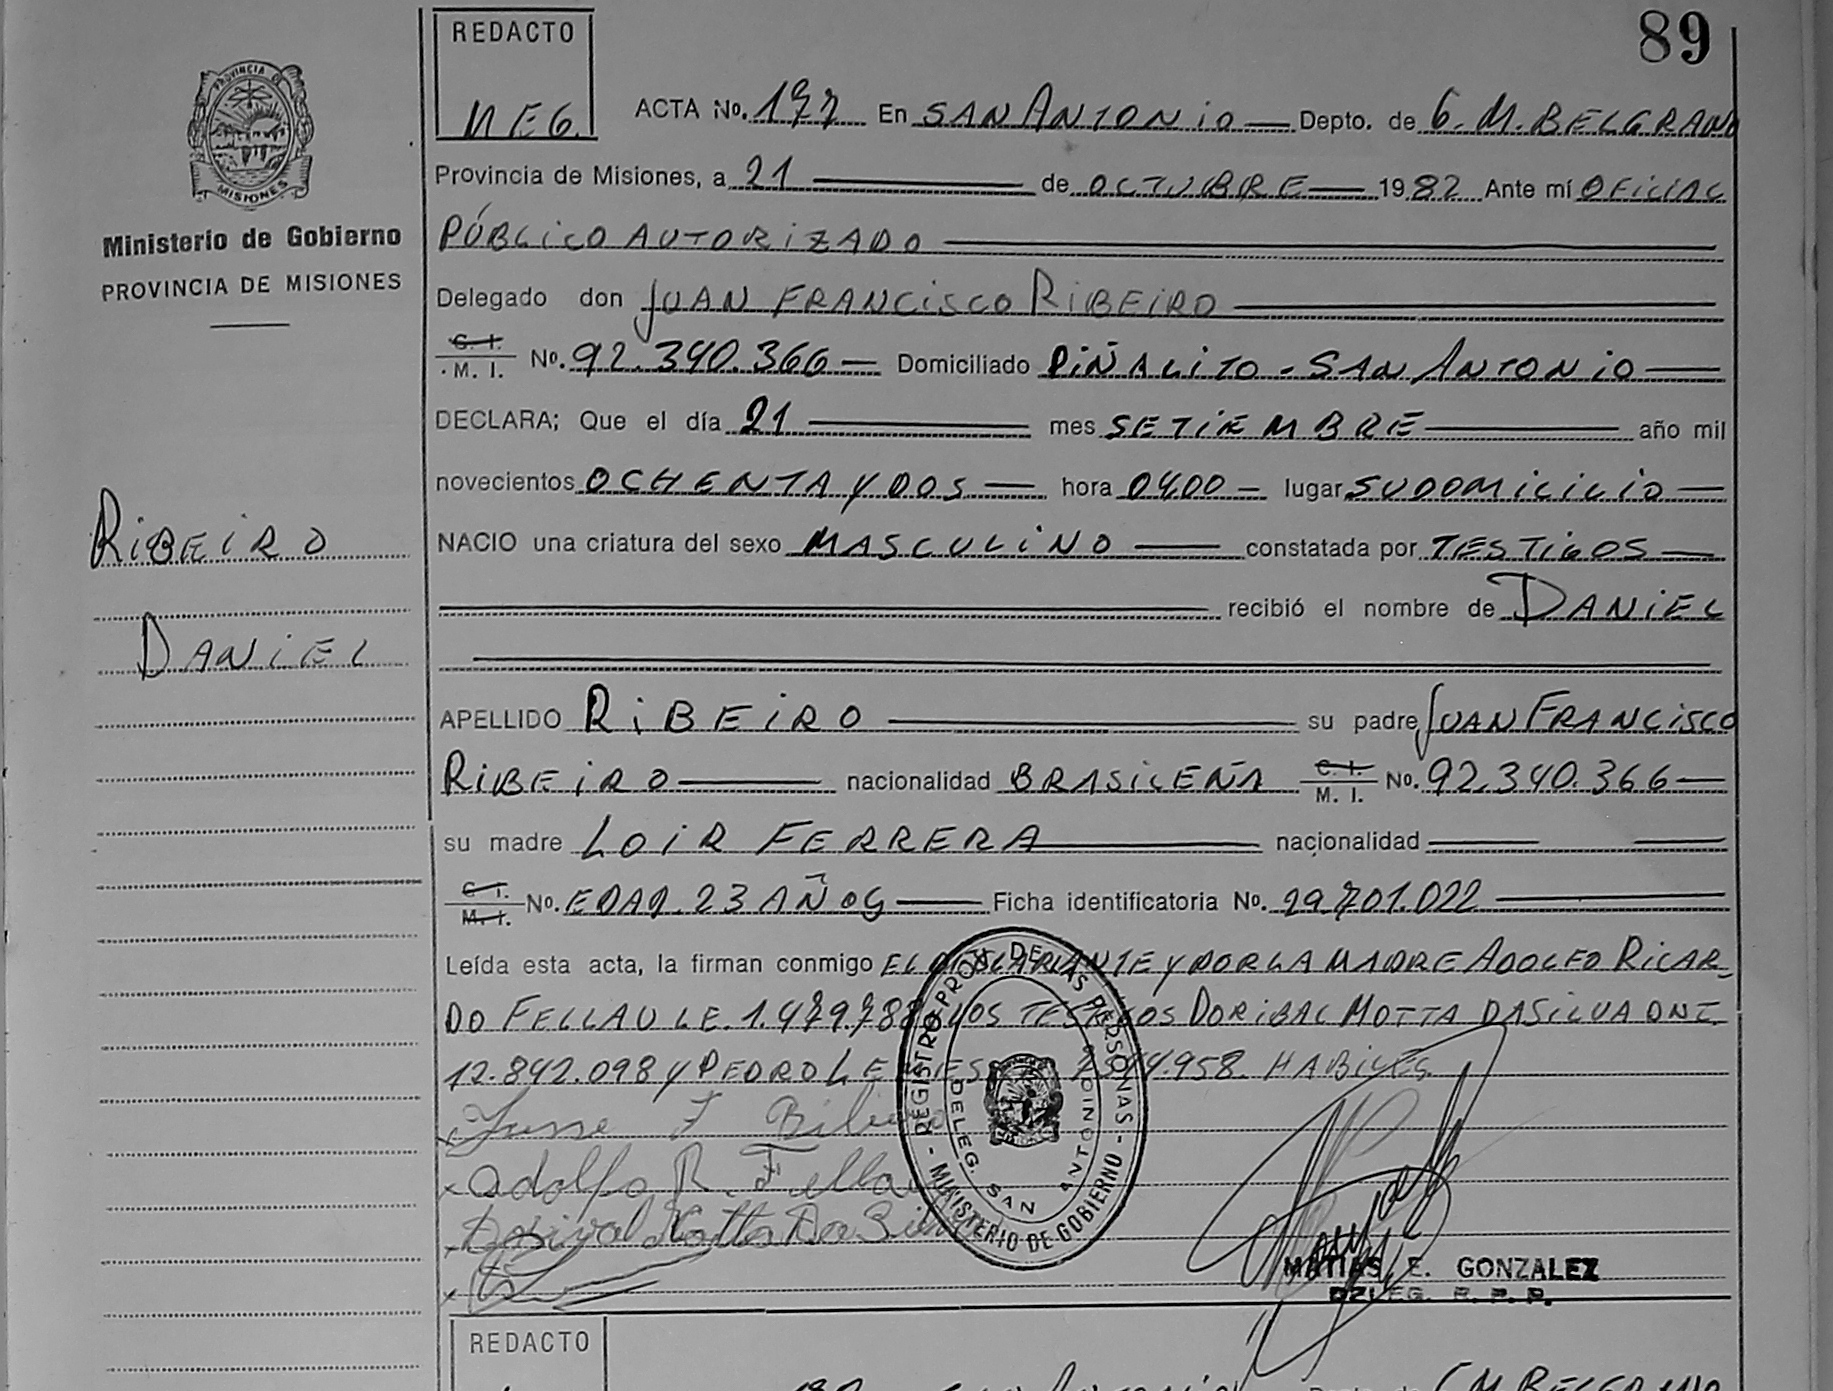 89
REDACTO
MEG.
PROVINCIA DE MISIONES
Ministerio de Gobierno
PROVINCIA DE MISIONES
RIBEIRO
DANIEL
ACTA No. 177 En SAN ANTONIO Depto. de G. M. BELGRANO
Provincia de Misiones, a 21 de OCTUBRE 1982 Ante mí OFICIAL
PÚBLICO AUTORIZADO
Delegado don JUAN FRANCISCO RIBEIRO
C. I. M. I. No. 92.340.366 Domiciliado PIÑALITO - SAN ANTONIO
DECLARA; Que el día 21 mes SETIEMBRE año mil
novecientos OCHENTA Y DOS hora 0400 lugar SU DOMICILIO
NACIO una criatura del sexo MASCULINO constatada por TESTIGOS
recibió el nombre de DANIEL
APELLIDO RIBEIRO su padre JUAN FRANCISCO
RIBEIRO nacionalidad BRASILEÑA C. I. M. I. No. 92.340.366
su madre LOIR FERRERA nacionalidad
C. I. M. I. No. EDAD. 23 AÑOS Ficha identificatoria No. 29.701.022
Leída esta acta, la firman conmigo EL DECLARANTE Y POR LA MADRE ADOLFO RICAR-
DO FELLAU LE. 1.479.788 LOS TESTIGOS DORIBAL MOTTA DA SILVA DNI.
12.842.098 Y PEDRO HABILES.
Adolfo R. Fellau
Dorival Motta Da Silva
REGISTRO PROV. DE LAS PERSONAS
- MINISTERIO DE GOBIERNO -
DELEG. SAN ANTONIO
MATIAS E. GONZALEZ
DELEG. R. P. P.
REDACTO